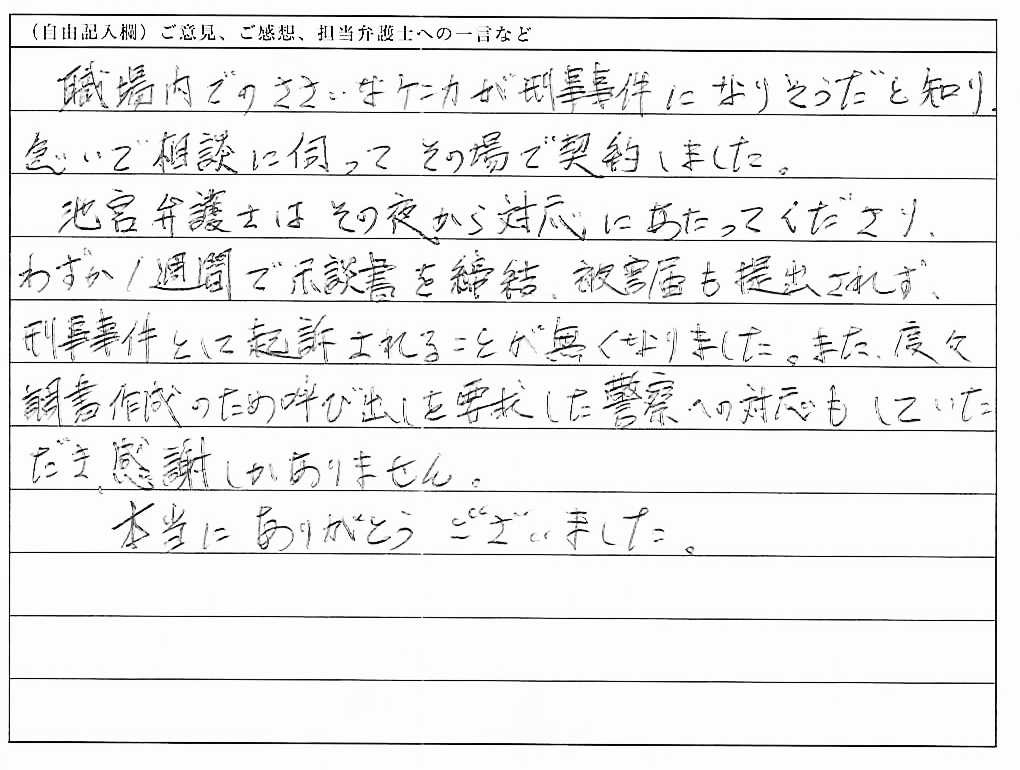 （自由記入欄）ご意見、ご感想、担当弁護士への一言など
職場内でのささいなケンカが刑事事件になりそうだと知り、
急いで相談に伺ってその場で契約しました。
池宮弁護士はその夜から対応にあたってくださり、
わずか1週間で示談書を締結、被害届も提出されず、
刑事事件として起訴されることが無くなりました。また、度々
調書作成のため呼び出しを要求した警察への対応もしていた
だき、感謝しかありません。
本当にありがとうございました。